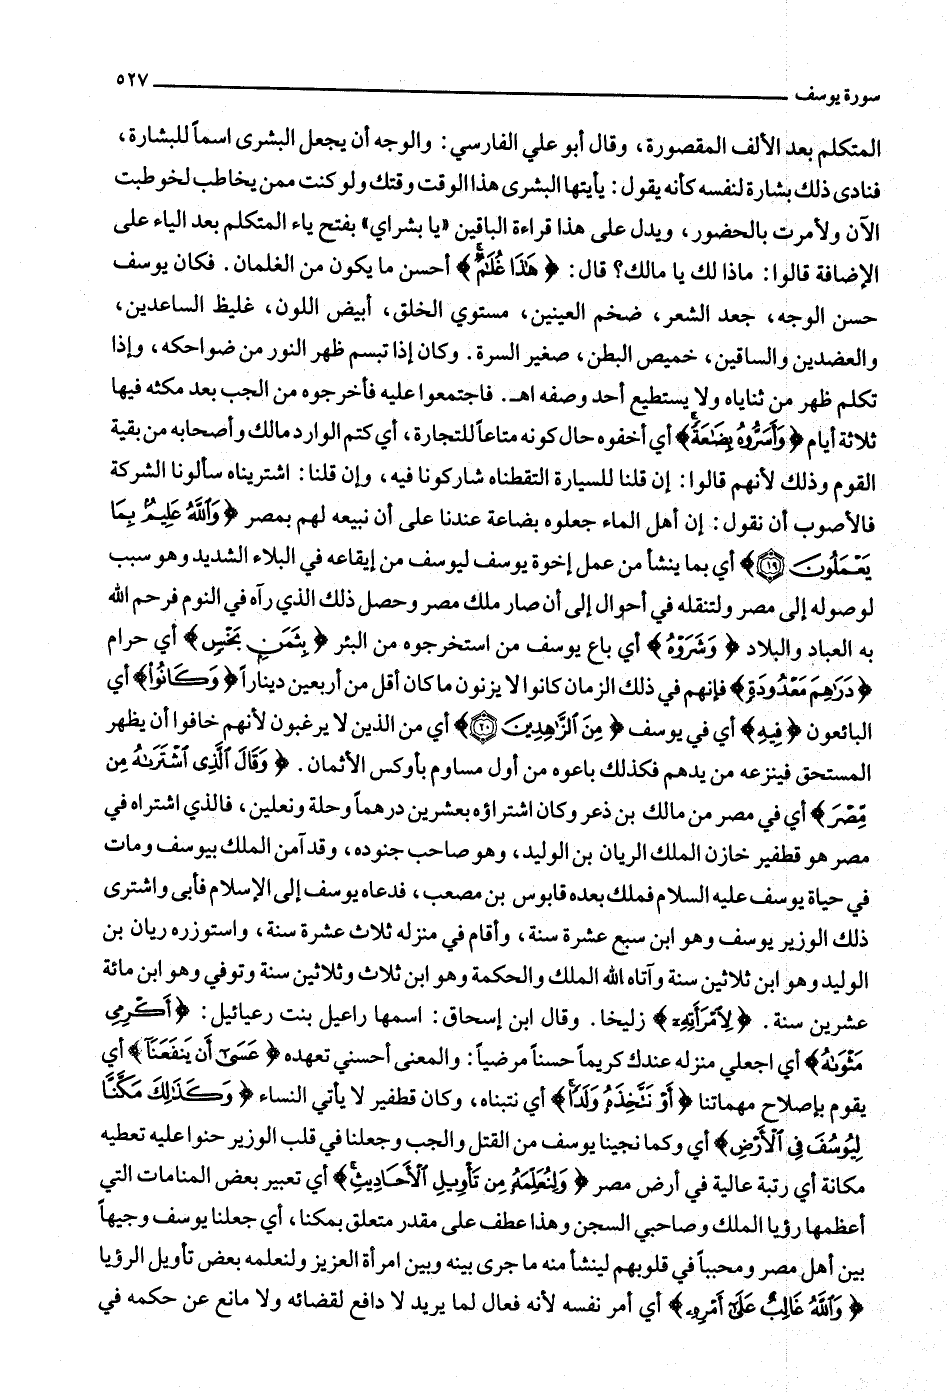 سورة يوسف ٥٢٧
المتكلم بعد الألف المقصورة، وقال أبو علي الفارسي: والوجه أن يجعل البشرى اسماً للبشارة،
فنادى ذلك بشارة لنفسه كأنه يقول: يأيتها البشرى هذا الوقت وقتك ولو كنت ممن يخاطب لخوطبت
الآن ولأمرت بالحضور، ويدل على هذا قراءة الباقين «يا بشراي» بفتح ياء المتكلم بعد الياء على
الإضافة قالوا: ماذا لك يا مالك؟ قال: ﴿ هَٰذَا غُلَٰمٌ ﴾ أحسن ما يكون من الغلمان. فكان يوسف
حسن الوجه، جعد الشعر، ضخم العينين، مستوي الخلق، أبيض اللون، غليظ الساعدين،
والعضدين والساقين، خميص البطن، صغير السرة. وكان إذا تبسم ظهر النور من ضواحكه، وإذا
تكلم ظهر من ثناياه ولا يستطيع أحد وصفه اهـ. فاجتمعوا عليه فأخرجوه من الجب بعد مكثه فيها
ثلاثة أيام ﴿ وَأَسَرُّوهُ بِضَٰعَةً ﴾ أي أخفوه حال كونه متاعاً للتجارة، أي كتم الوارد مالك وأصحابه من بقية
القوم وذلك لأنهم قالوا: إن قلنا للسيارة التقطناه شاركونا فيه، وإن قلنا: اشتريناه سألونا الشركة
فالأصوب أن نقول: إن أهل الماء جعلوه بضاعة عندنا على أن نبيعه لهم بمصر ﴿ وَٱللَّهُ عَلِيمٌۢ بِمَا
يَعْمَلُونَ ۝١٩ ﴾ أي بما ينشأ من عمل إخوة يوسف ليوسف من إيقاعه في البلاء الشديد وهو سبب
لوصوله إلى مصر ولتنقله في أحوال إلى أن صار ملك مصر وحصل ذلك الذي رآه في النوم فرحم الله
به العباد والبلاد ﴿ وَشَرَوْهُ ﴾ أي باع يوسف من استخرجوه من البئر ﴿ بِثَمَنٍۭ بَخْسٍ ﴾ أي حرام
﴿ دَرَٰهِمَ مَعْدُودَةٍ ﴾ فإنهم في ذلك الزمان كانوا لا يزنون ما كان أقل من أربعين ديناراً ﴿ وَكَانُوا۟ ﴾ أي
البائعون ﴿ فِيهِ ﴾ أي في يوسف ﴿ مِنَ ٱلزَّٰهِدِينَ ۝٢٠ ﴾ أي من الذين لا يرغبون لأنهم خافوا أن يظهر
المستحق فينزعه من يدهم فكذلك باعوه من أول مساوم بأوكس الأثمان. ﴿ وَقَالَ ٱلَّذِى ٱشْتَرَىٰهُ مِن
مِّصْرَ ﴾ أي في مصر من مالك بن ذعر وكان اشتراؤه بعشرين درهماً وحلة ونعلين، فالذي اشتراه في
مصر هو قطفير خازن الملك الريان بن الوليد، وهو صاحب جنوده، وقد آمن الملك بيوسف ومات
في حياة يوسف عليه السلام فملك بعده قابوس بن مصعب، فدعاه يوسف إلى الإسلام فأبى واشترى
ذلك الوزير يوسف وهو ابن سبع عشرة سنة، وأقام في منزله ثلاث عشرة سنة، واستوزره ريان بن
الوليد وهو ابن ثلاثين سنة وآتاه الله الملك والحكمة وهو ابن ثلاث وثلاثين سنة وتوفي وهو ابن مائة
عشرين سنة. ﴿ لِٱمْرَأَتِهِۦٓ ﴾ زليخا. وقال ابن إسحاق: اسمها راعيل بنت رعيائيل: ﴿ أَكْرِمِى
مَثْوَىٰهُ ﴾ أي اجعلي منزله عندك كريماً حسناً مرضياً: والمعنى أحسني تعهده ﴿ عَسَىٰٓ أَن يَنفَعَنَآ ﴾ أي
يقوم بإصلاح مهماتنا ﴿ أَوْ نَتَّخِذَهُۥ وَلَدًا ﴾ أي نتبناه، وكان قطفير لا يأتي النساء ﴿ وَكَذَٰلِكَ مَكَّنَّا
لِيُوسُفَ فِى ٱلْأَرْضِ ﴾ أي وكما نجينا يوسف من القتل والجب وجعلنا في قلب الوزير حنوا عليه تعطيه
مكانة أي رتبة عالية في أرض مصر ﴿ وَلِنُعَلِّمَهُۥ مِن تَأْوِيلِ ٱلْأَحَادِيثِ ﴾ أي تعبير بعض المنامات التي
أعظمها رؤيا الملك وصاحبي السجن وهذا عطف على مقدر متعلق بمكنا، أي جعلنا يوسف وجيهاً
بين أهل مصر ومحبباً في قلوبهم لينشأ منه ما جرى بينه وبين امرأة العزيز ولنعلمه بعض تأويل الرؤيا
﴿ وَٱللَّهُ غَالِبٌ عَلَىٰٓ أَمْرِهِۦ ﴾ أي أمر نفسه لأنه فعال لما يريد لا دافع لقضائه ولا مانع عن حكمه في